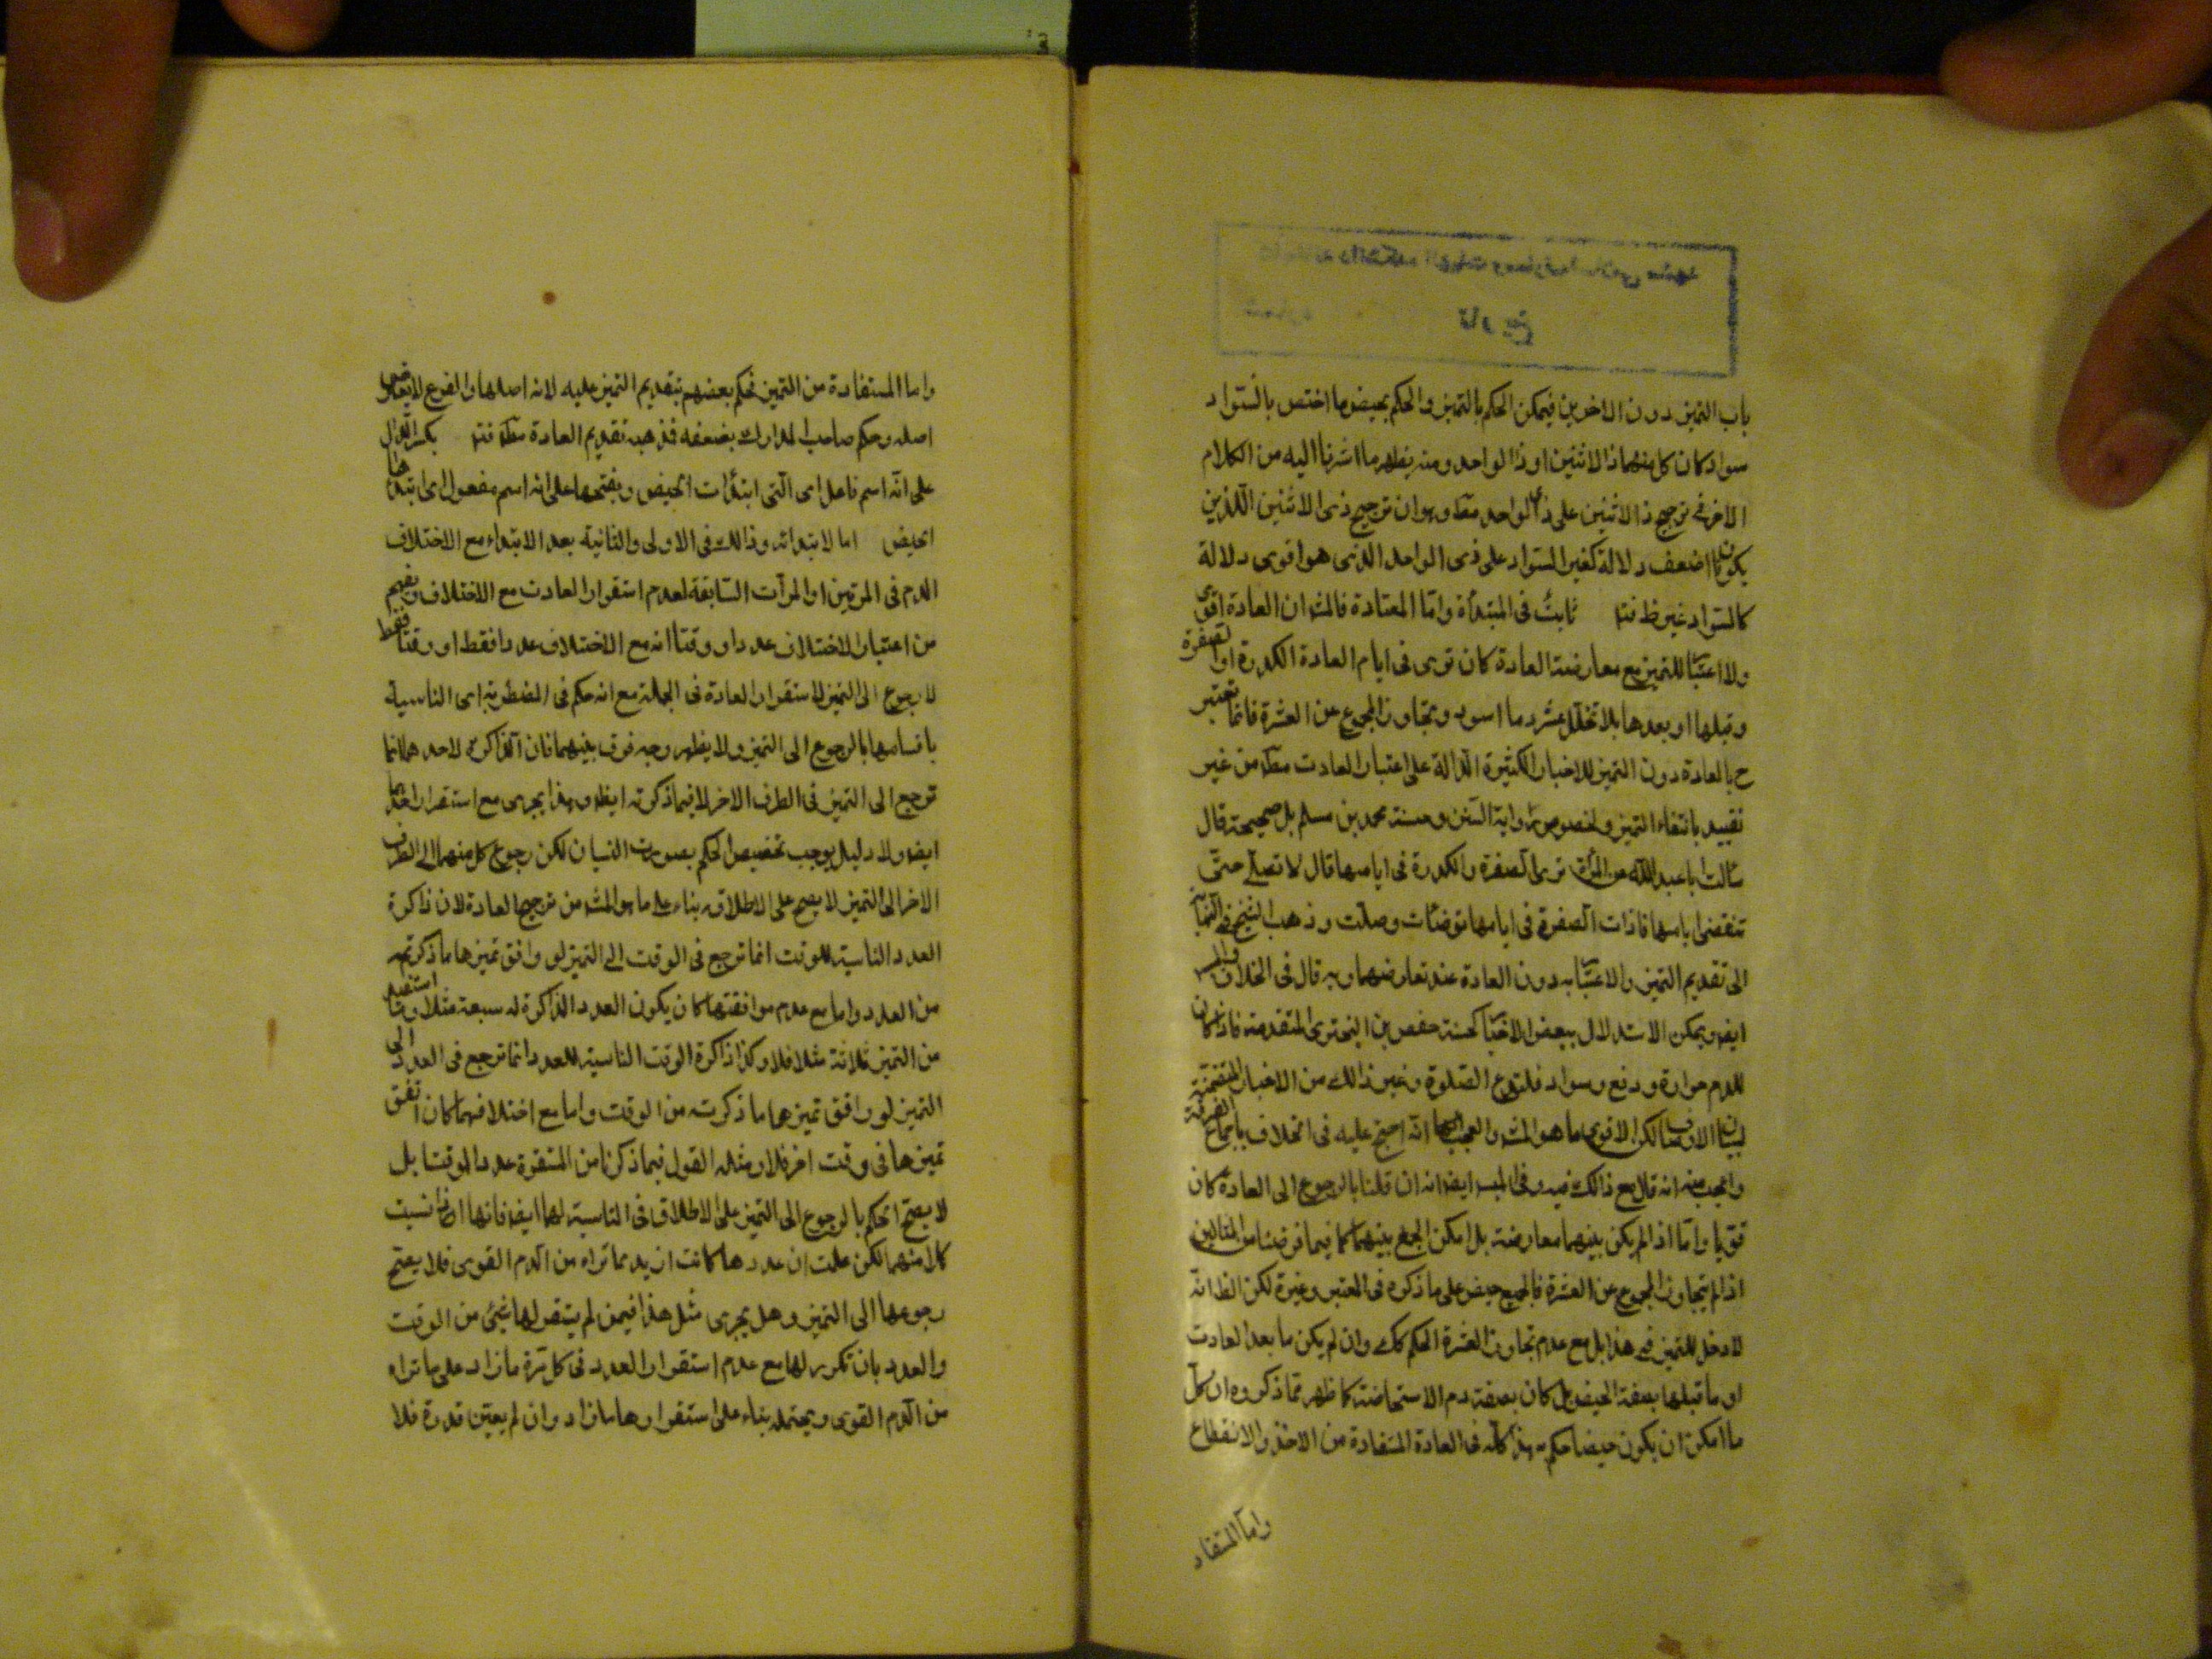 باب التميز دون الاخرين فيمكن الحكم بالتميز والحكم بحيض ما اختص بالسواد
سواد كان كل منهما ذا الاثنين او ذا الواحد ومنه يظهر ما اشرنا اليه من الكلام
الاخر في ترجيح ذا الاثنين على ذي الواحد مقط وهو ان ترجيح ذى الاثنين اللذين
يكونا اضعف دلالة كغير السواد على ذى الواحد الذى هو اقوى دلالة
كالسواد غير ظ فتد ثابت فى المبتدأة واما المعتادة فالمش ان العادة اقوى
ولا اعتبار للتميز مع معارضة العادة كان ترى فى ايام العادة الكدرة او الصفرة
وقبلها او بعدها بلا تخلل عشر دما اسود وتجاوز المجموع عن العشرة فانما تعتبر
ح بالعادة دون التميز للاخبار الكثيرة الدالة على اعتبار العادت مقط من غير
تقييد بانتفاء التميز ولخصوص رواية السنن وحسنة محمد بن مسلم بل صحيحته قال
سألت ابا عبد الله عن المرأة ترى الصفرة والكدرة فى ايامها قال لا تصلى حتى
تنقضى ايامها فاذات الصفرة فى ايامها توضأت وصلت وذهب الشيخ في النهاية
الى تقديم التميز والاعتبار به دون العادة عند تعارضهما وبه قال فى الخلاف والمبسوط
ايض ويمكن الاستدلال ببعض الاخبار كحسنة حفص بن البخترى المتقدمة فاذا كان
للدم حرارة ودفع وسواد فلتدع الصلوة وغير ذالك من الاخبار المتضمنة
لبيان الاوصاف لكن الاقوى ما هو المش والعجب انه احتج عليه فى الخلاف باجماع الفرقة
واعجب منه انه قال مع ذالك فيه وفى المبسوط ايض انه ان قلنا بالرجوع الى العادة كان
قويا واما اذا لم يكن بينهما معارضة بل امكن الجمع بينهما كما فيما فرضنا من المثالين
اذا لم يتجاوز المجموع عن العشرة فالجميع حيض على ما ذكره فى المعتبر وغيره لكن الظ انه
لا دخل للتميز في هذا بل مع عدم تجاوز العشرة الحكم كك وان لم يكن ما بعد العادت
او ما قبلها بصفة الحيض بل كان بصفة دم الاستحاضة كما ظهر مما ذكروه ان كل
ما امكن ان يكون حيضا حكم به هذا كله فى العادة المستفادة من الاخذ والانقطاع
واما المستفاد
واما المستفادة من التميز فحكم بعضهم بتقديم التميز عليه لانه اصلها والفرع لا يعارض
اصله وحكم صاحب المدارك بضعفه فذهب تقديم العادة مقط فتد بكسر الدال
على انه اسم فاعل اى التى ابتدأت الحيض وبفتحها على انه اسم مفعول اى ابتدأها
الحيض اما لابتدائه وذالك فى الاولى والثانية بعد الابتداء مع الاختلاف
الدم فى المرتين او المرآت السابقة لعدم استقرار العادت مع الاختلاف ويفهم
من اعتبار الاختلاف عددا ووقتا انه مع الاختلاف عددا فقط او وقتا فقط
لا رجوع الى التميز لاستقرار العادة فى الجملة مع انه حكم فى المضطربة اى الناسية
باقسامها بالرجوع الى التميز ولا يظهر وجه فرق بينهما فان الذاكرة لاحدهما انما
ترجع الى التميز فى الطرف الاخر لا فيما ذكرته ايض وهذا يجرى مع استقرار احدهما
ايض ولا دليل يوجب تخصيص الحكم بصورت النسيان لكن رجوع كل منهما الى الطرف
الاخر الى التميز لا يصح على الاطلاق بناء على ما هو المش من ترجيح العادة لان ذاكرة
العدد الناسية للوقت انما ترجع فى الوقت الى التميز لو وافق تميزها ما ذكرته
من العدد واما مع عدم موافقتها كان يكون العدد الذاكرة له سبعة مثلا وما استفيد
من التميز ثلاثة مثلا فلا وكذا ذاكرة الوقت الناسية للعدد انما ترجع فى العدد الى
التميز لو وافق تميزها ما ذكرته من الوقت واما مع اختلافهما كان اتفق
تميزها فى وقت اخر فلا ومثله القول فيما ذكرنا من المستقرة عددا او وقتا بل
لا يصح الحكم بالرجوع الى التميز على الاطلاق فى الناسية لهما ايض فانها نسيت
كلا منهما لكن علمت ان عددها كانت ازيد مما تراه من الدم القوى فلا يصح
رجوعها الى التميز وهل يجرى مثل هذا فيمن لم يستقر لها شئ من الوقت
والعدد بان تكرر لها مع عدم استقرار العدد فى كل مرة ما زاد على ما تراه
من الدم القوى ويحتمله بناء على استقرارها ما زاد وان لم يعين قدره فلا